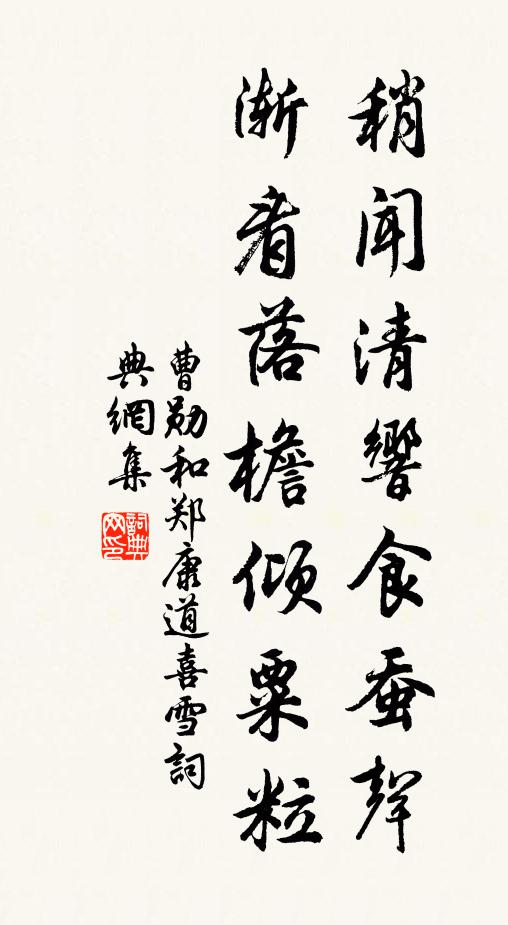 稍闻清響食蚕聲
渐看落檐倾粟粒
曹勋和郑康道喜雪詞
典網集
詞典网印